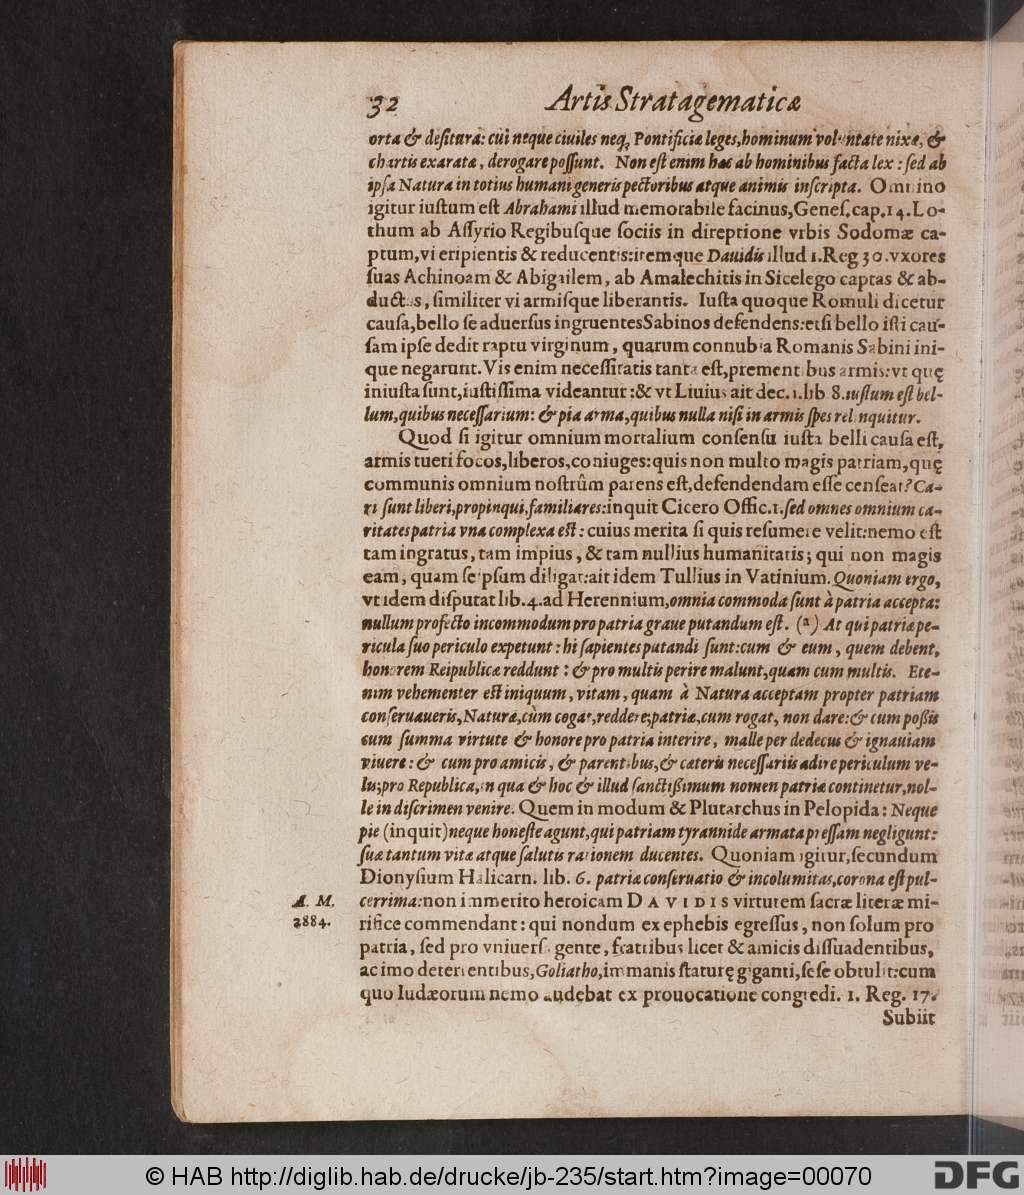 32 Artis Stratagematicæ
orta & desitura: cui neque ciuiles neq; Pontificiæ leges, hominum voluntate nixæ, &
chartis exaratæ, derogare possunt. Non est enim hæc ab hominibus facta lex: sed ab
ipsa Natura in totius humani generis pectoribus atque animis inscripta. Omnino
igitur iustum est Abrahami illud memorabile facinus, Genes. cap. 14. Lo-
thum ab Assyrio Regibusque sociis in direptione vrbis Sodomæ ca-
ptum, vi eripientis & reducentis: itemque Dauidis illud 1. Reg 30. vxores
suas Achinoam & Abigailem, ab Amalechitis in Sicelego captas & ab-
ductas, similiter vi armisque liberantis. Iusta quoque Romuli dicetur
causa, bello se aduersus ingruentes Sabinos defendens: etsi bello isti cau-
sam ipse dedit raptu virginum, quarum connubia Romanis Sabini ini-
que negarunt. Vis enim necessitatis tanta est, prementibus armis: vt quę
iniusta sunt, iustissima videantur: & vt Liuius ait dec. 1. lib 8. iustum est bel-
lum, quibus necessarium: & pia arma, quibus nulla nisi in armis spes relinquitur.
Quod si igitur omnium mortalium consensu iusta belli causa est,
armis tueri focos, liberos, coniuges: quis non multo magis patriam, quę
communis omnium nostrûm parens est, defendendam esse censeat? Ca-
ri sunt liberi, propinqui, familiares: inquit Cicero Offic. 1. sed omnes omnium ca-
ritates patria vna complexa est: cuius merita si quis resumere velit: nemo est
tam ingratus, tam impius, & tam nullius humanitatis; qui non magis
eam, quam seipsum diligat: ait idem Tullius in Vatinium. Quoniam ergo,
vt idem disputat lib. 4. ad Herennium, omnia commoda sunt à patria accepta:
nullum profecto incommodum pro patria graue putandum est. (a) At qui patriæ pe-
ricula suo periculo expetunt: hi sapientes putandi sunt: cum & eum, quem debent,
honorem Reipublicæ reddunt: & pro multis perire malunt, quam cum multis. Ete-
nim vehementer est iniquum, vitam, quam à Natura acceptam propter patriam
conseruaueris, Naturæ, cùm cogat, reddere; patriæ, cum rogat, non dare: & cum possis
cum summa virtute & honore pro patria interire, malle per dedecus & ignauiam
viuere: & cum pro amicis, & parentibus, & cæteris necessariis adire periculum ve-
lis; pro Republica, in qua & hoc & illud sanctissimum nomen patriæ continetur, nol-
le in discrimen venire. Quem in modum & Plutarchus in Pelopida: Neque
pie (inquit) neque honeste agunt, qui patriam tyrannide armata pressam negligunt:
suæ tantum vitæ atque salutis rationem ducentes. Quoniam igitur, secundum
Dionysium Halicarn. lib. 6. patriæ conseruatio & incolumitas, corona est pul-
A. M. cerrima: non immerito heroicam DAVIDIS virtutem sacræ literæ mi-
2884. rifice commendant: qui nondum ex ephebis egressus, non solum pro
patria, sed pro vniuersa gente, fratribus licet & amicis dissuadentibus,
ac imo deterrentibus, Goliatho, immanis staturę giganti, sese obtulit: cum
quo Iudæorum nemo audebat ex prouocatione congredi. 1. Reg. 17.
Subiit
© HAB http://diglib.hab.de/drucke/jb-235/start.htm?image=00070 DFG